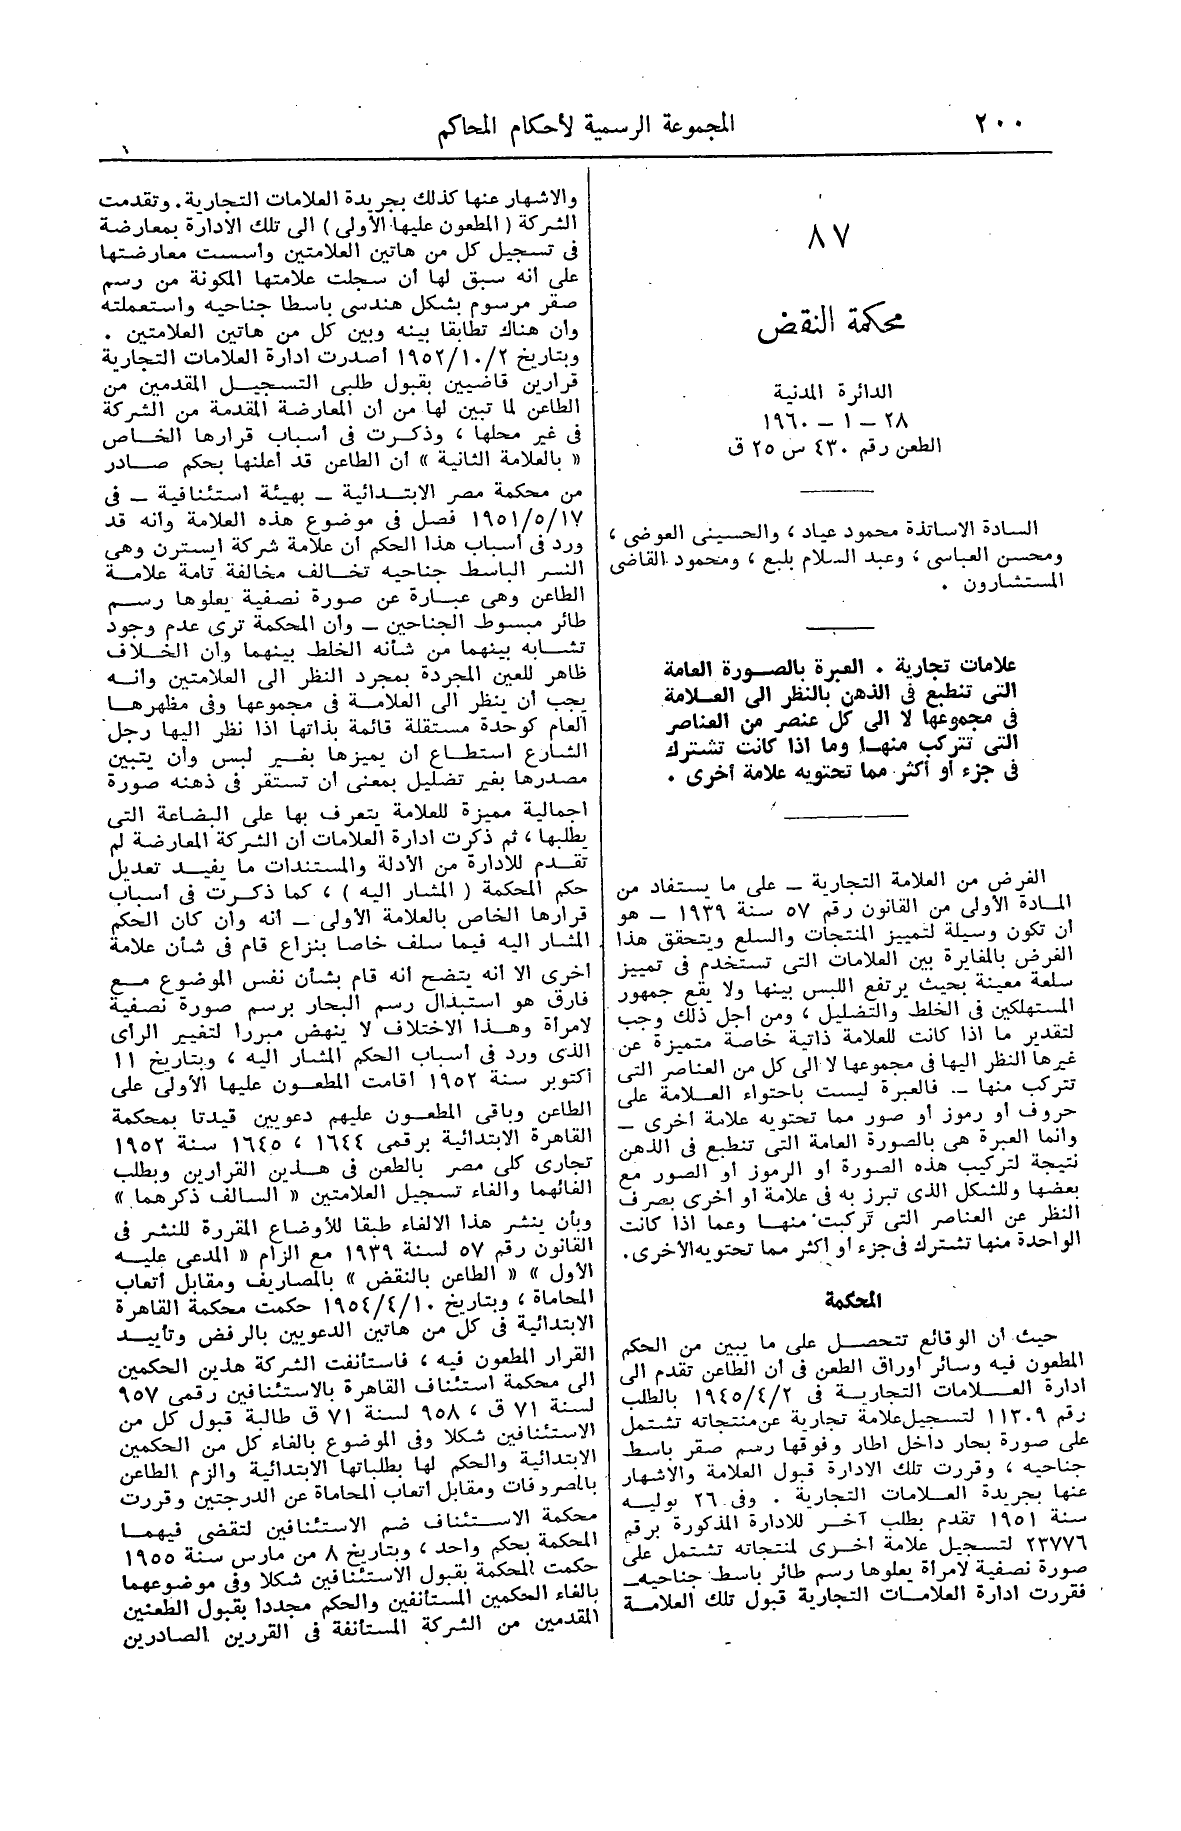 ٢٠٠
المجموعة الرسمية لأحكام المحاكم
٨٧
محكمة النقض
الدائرة المدنية
٢٨ – ١ – ١٩٦٠
الطعن رقم ٤٣٠ س ٢٥ ق
السادة الاساتذة محمود عياد ، والحسينى العوضى ،
ومحسن العباسى ، وعبد السلام بلبع ، ومحمود القاضى
المستشارون .
علامات تجارية . العبرة بالصورة العامة
التى تنطبع فى الذهن بالنظر الى العلامة
فى مجموعها لا الى كل عنصر من العناصر
التى تتركب منها وما اذا كانت تشترك
فى جزء أو أكثر مما تحتويه علامة أخرى .
الغرض من العلامة التجارية – على ما يستفاد من
المادة الأولى من القانون رقم ٥٧ سنة ١٩٣٩ – هو
أن تكون وسيلة لتمييز المنتجات والسلع ويتحقق هذا
الغرض بالمغايرة بين العلامات التى تستخدم فى تمييز
سلعة معينة بحيث يرتفع اللبس بينها ولا يقع جمهور
المستهلكين فى الخلط والتضليل ، ومن أجل ذلك وجب
لتقدير ما اذا كانت للعلامة ذاتية خاصة متميزة عن
غيرها النظر اليها فى مجموعها لا الى كل من العناصر التى
تتركب منها – فالعبرة ليست باحتواء العلامة على
حروف أو رموز أو صور مما تحتويه علامة أخرى –
وانما العبرة هى بالصورة العامة التى تنطبع فى الذهن
نتيجة لتركيب هذه الصورة أو الرموز أو الصور مع
بعضها وللشكل الذى تبرز به فى علامة أو أخرى بصرف
النظر عن العناصر التى تركبت منها وعما اذا كانت
الواحدة منها تشترك فى جزء أو أكثر مما تحتويه الأخرى.
المحكمة
حيث أن الوقائع تتحصل على ما يبين من الحكم
المطعون فيه وسائر أوراق الطعن فى أن الطاعن تقدم الى
ادارة العلامات التجارية فى ١٩٤٥/٤/٢ بالطلب
رقم ١١٣٠٩ لتسجيل علامة تجارية عن منتجاته تشتمل
على صورة بحار داخل اطار وفوقها رسم صقر باسط
جناحيه ، وقررت تلك الادارة قبول العلامة والاشهار
عنها بجريدة العلامات التجارية . وفى ٢٦ يوليه
سنة ١٩٥١ تقدم بطلب آخر للادارة المذكورة برقم
٢٣٧٧٦ لتسجيل علامة أخرى لمنتجاته تشتمل على
صورة نصفية لامرأة يعلوها رسم طائر باسط جناحيه
فقررت ادارة العلامات التجارية قبول تلك العلامة
والاشهار عنها كذلك بجريدة العلامات التجارية. وتقدمت
الشركة ( المطعون عليها الأولى ) الى تلك الادارة بمعارضة
فى تسجيل كل من هاتين العلامتين وأسست معارضتها
على أنه سبق لها أن سجلت علامتها المكونة من رسم
صقر مرسوم بشكل هندسى باسطا جناحيه واستعملته
وأن هناك تطابقا بينه وبين كل من هاتين العلامتين .
وبتاريخ ١٩٥٢/١٠/٢ أصدرت ادارة العلامات التجارية
قرارين قاضيين بقبول طلبى التسجيل المقدمين من
الطاعن لما تبين لها من أن المعارضة المقدمة من الشركة
فى غير محلها ، وذكرت فى أسباب قرارها الخاص
« بالعلامة الثانية » أن الطاعن قد أعلنها بحكم صادر
من محكمة مصر الابتدائية – بهيئة استئنافية – فى
١٩٥١/٥/١٧ فصل فى موضوع هذه العلامة وأنه قد
ورد فى أسباب هذا الحكم أن علامة شركة ايسترن وهى
النسر الباسط جناحيه تخالف مخالفة تامة علامة
الطاعن وهى عبارة عن صورة نصفية يعلوها رسم
طائر مبسوط الجناحين – وأن المحكمة ترى عدم وجود
تشابه بينهما من شأنه الخلط بينهما وأن الخلاف
ظاهر للعين المجردة بمجرد النظر الى العلامتين وأنه
يجب أن ينظر الى العلامة فى مجموعها وفى مظهرها
العام كوحدة مستقلة قائمة بذاتها اذا نظر اليها رجل
الشارع استطاع أن يميزها بغير لبس وأن يتبين
مصدرها بغير تضليل بمعنى أن تستقر فى ذهنه صورة
اجمالية مميزة للعلامة يتعرف بها على البضاعة التى
يطلبها ، ثم ذكرت ادارة العلامات أن الشركة المعارضة لم
تقدم للادارة من الأدلة والمستندات ما يفيد تعديل
حكم المحكمة ( المشار اليه ) ، كما ذكرت فى أسباب
قرارها الخاص بالعلامة الأولى – أنه وأن كان الحكم
المشار اليه فيما سلف خاصا بنزاع قام فى شأن علامة
أخرى الا أنه يتضح أنه قام بشأن نفس الموضوع مع
فارق هو استبدال رسم البحار برسم صورة نصفية
لامرأة وهذا الاختلاف لا ينهض مبررا لتغيير الرأى
الذى ورد فى أسباب الحكم المشار اليه ، وبتاريخ ١١
أكتوبر سنة ١٩٥٢ أقامت المطعون عليها الأولى على
الطاعن وباقى المطعون عليهم دعويين قيدتا بمحكمة
القاهرة الابتدائية برقمى ١٦٤٤ ، ١٦٤٥ سنة ١٩٥٢
تجارى كلى مصر بالطعن فى هذين القرارين وبطلب
الغائهما والغاء تسجيل العلامتين « السالف ذكرهما »
وبأن ينشر هذا الالغاء طبقا للأوضاع المقررة للنشر فى
القانون رقم ٥٧ لسنة ١٩٣٩ مع الزام « المدعى عليه
الأول » « الطاعن بالنقض » بالمصاريف ومقابل أتعاب
المحاماة ، وبتاريخ ١٩٥٤/٤/١٠ حكمت محكمة القاهرة
الابتدائية فى كل من هاتين الدعويين بالرفض وتأييد
القرار المطعون فيه ، فاستأنفت الشركة هذين الحكمين
الى محكمة استئناف القاهرة بالاستئنافين رقمى ٩٥٧
لسنة ٧١ ق ، ٩٥٨ لسنة ٧١ ق طالبة قبول كل من
الاستئنافين شكلا وفى الموضوع بالغاء كل من الحكمين
الابتدائية والحكم لها بطلباتها الابتدائية والزم الطاعن
بالمصروفات ومقابل أتعاب المحاماة عن الدرجتين وقررت
محكمة الاستئناف ضم الاستئنافين لتقضى فيهما
المحكمة بحكم واحد ، وبتاريخ ٨ من مارس سنة ١٩٥٥
حكمت المحكمة بقبول الاستئنافين شكلا وفى موضوعهما
بالغاء الحكمين المستأنفين والحكم مجددا بقبول الطعنين
المقدمين من الشركة المستأنفة فى القررين الصادرين